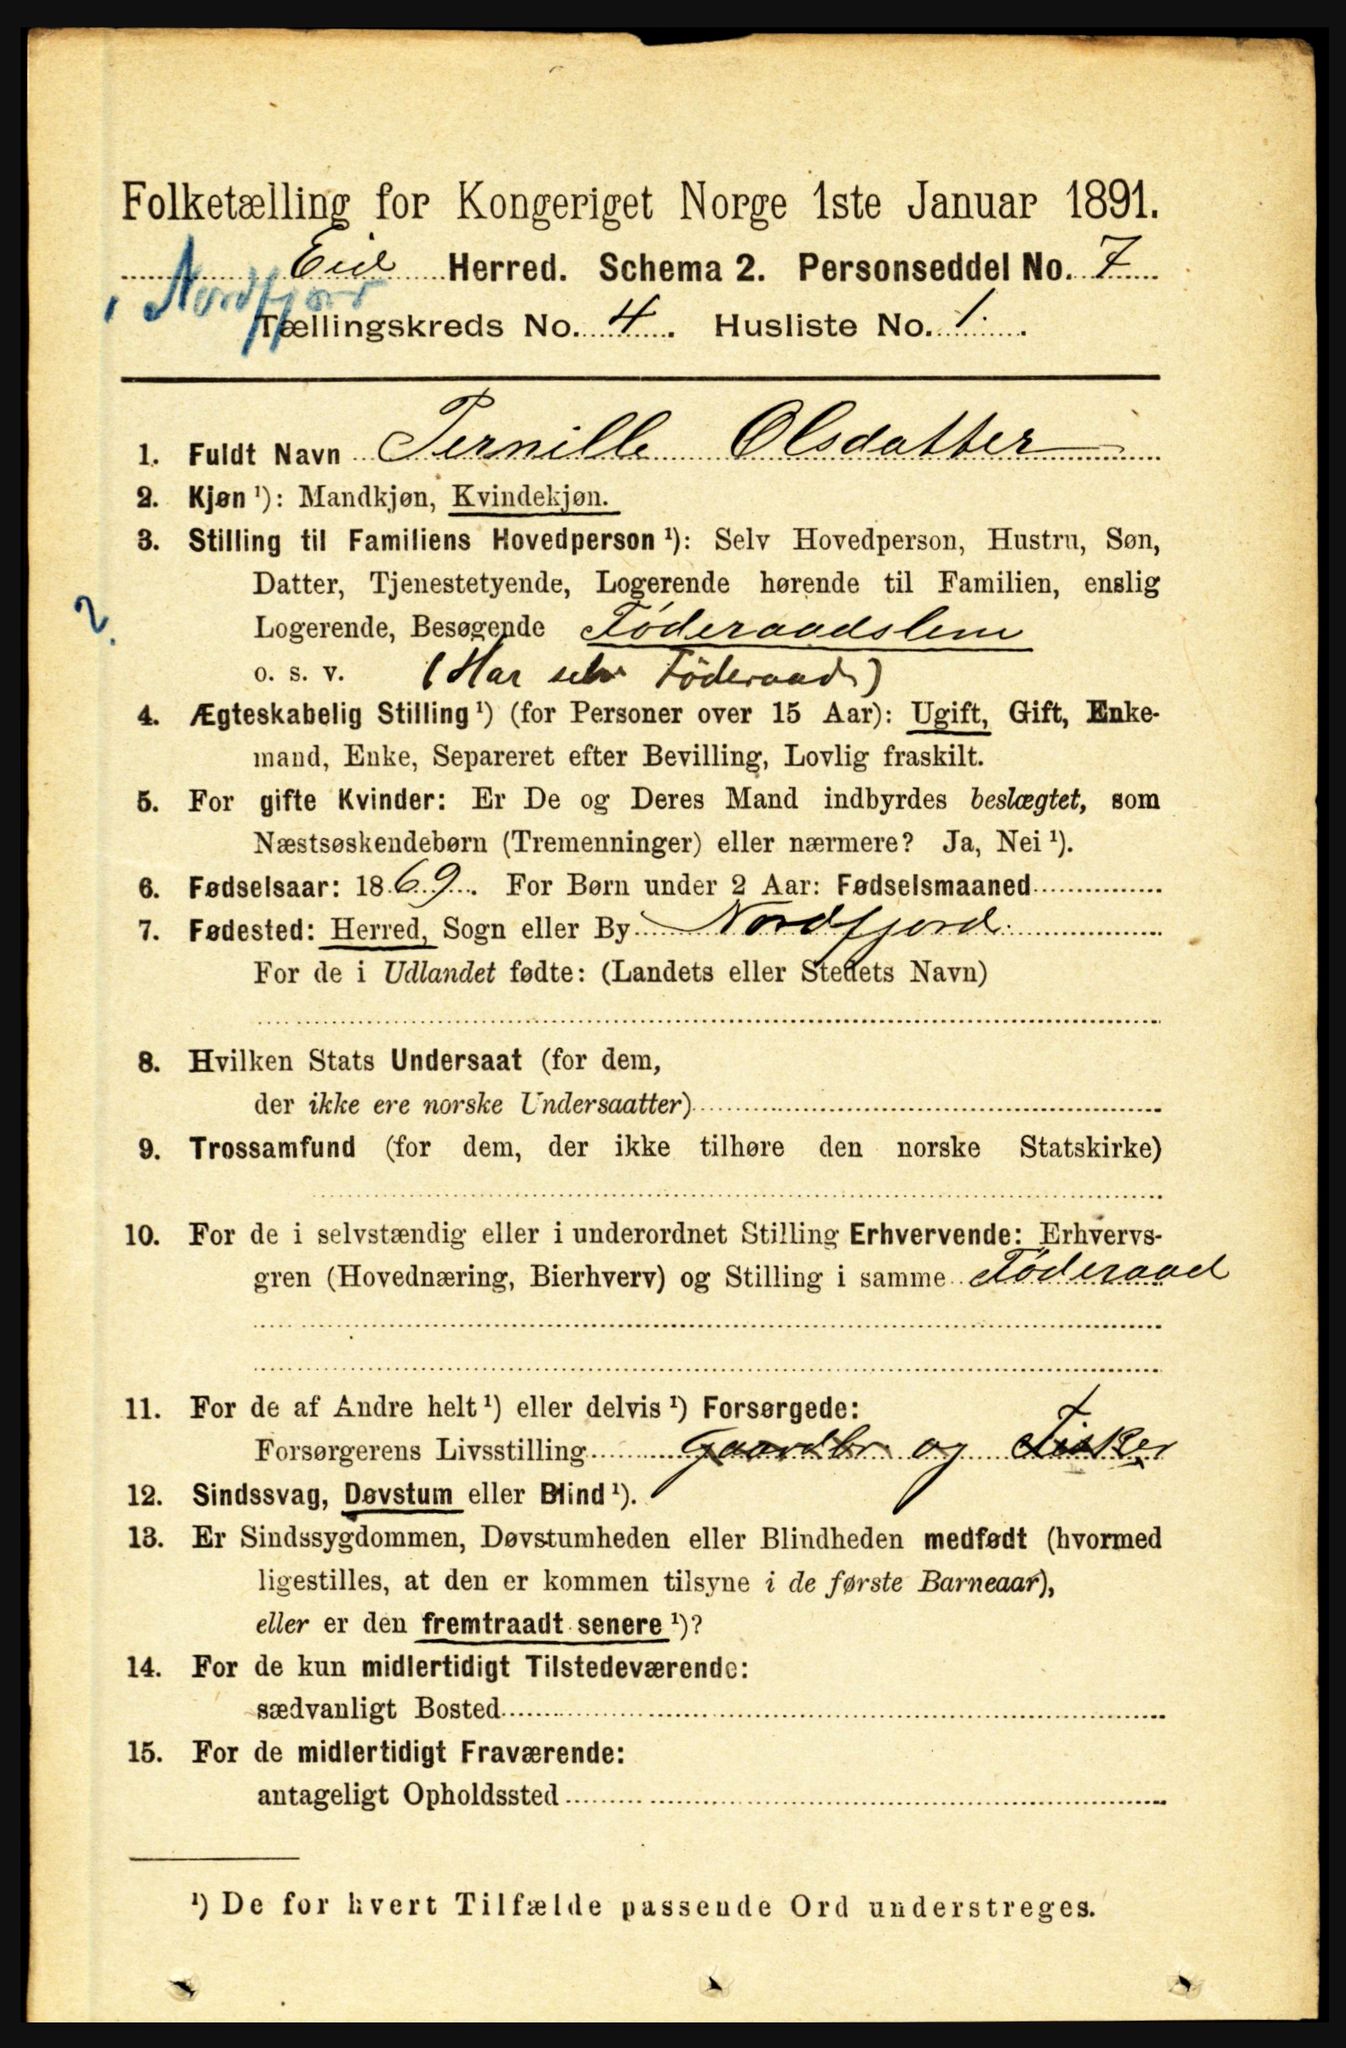 Folketælling for Kongeriget Norge 1ste Januar 1891.
Eid Herred. Schema 2. Personseddel No. 7
i Nordfjord
Tællingskreds No. 4. Husliste No. 1.
1. Fuldt Navn Pernille Olsdatter
2. Kjøn¹): Mandkjøn, Kvindekjøn.
3. Stilling til Familiens Hovedperson¹): Selv Hovedperson, Hustru, Søn,
Datter, Tjenestetyende, Logerende hørende til Familien, enslig
2.
Logerende, Besøgende Føderaadslem
o. s. v. (Har selv Føderaad)
4. Ægteskabelig Stilling¹) (for Personer over 15 Aar): Ugift, Gift, Enke-
mand, Enke, Separeret efter Bevilling, Lovlig fraskilt.
5. For gifte Kvinder: Er De og Deres Mand indbyrdes beslægtet, som
Næstsøskendebørn (Tremenninger) eller nærmere? Ja, Nei¹).
6. Fødselsaar: 1869. For Børn under 2 Aar: Fødselsmaaned
7. Fødested: Herred, Sogn eller By Nordfjord
For de i Udlandet fødte: (Landets eller Stedets Navn)
8. Hvilken Stats Undersaat (for dem,
der ikke ere norske Undersaatter)
9. Trossamfund (for dem, der ikke tilhøre den norske Statskirke)
10. For de i selvstændig eller i underordnet Stilling Erhvervende: Erhvervs-
gren (Hovednæring, Bierhverv) og Stilling i samme Føderaad
11. For de af Andre helt¹) eller delvis¹) Forsørgede:
Forsørgerens Livsstilling Gaardbr. og Fisker
12. Sindssvag, Døvstum eller Blind¹).
13. Er Sindssygdommen, Døvstumheden eller Blindheden medfødt (hvormed
ligestilles, at den er kommen tilsyne i de første Barneaar),
eller er den fremtraadt senere¹)?
14. For de kun midlertidigt Tilstedeværende:
sædvanligt Bosted
15. For de midlertidigt Fraværende:
antageligt Opholdssted
¹) De for hvert Tilfælde passende Ord understreges.